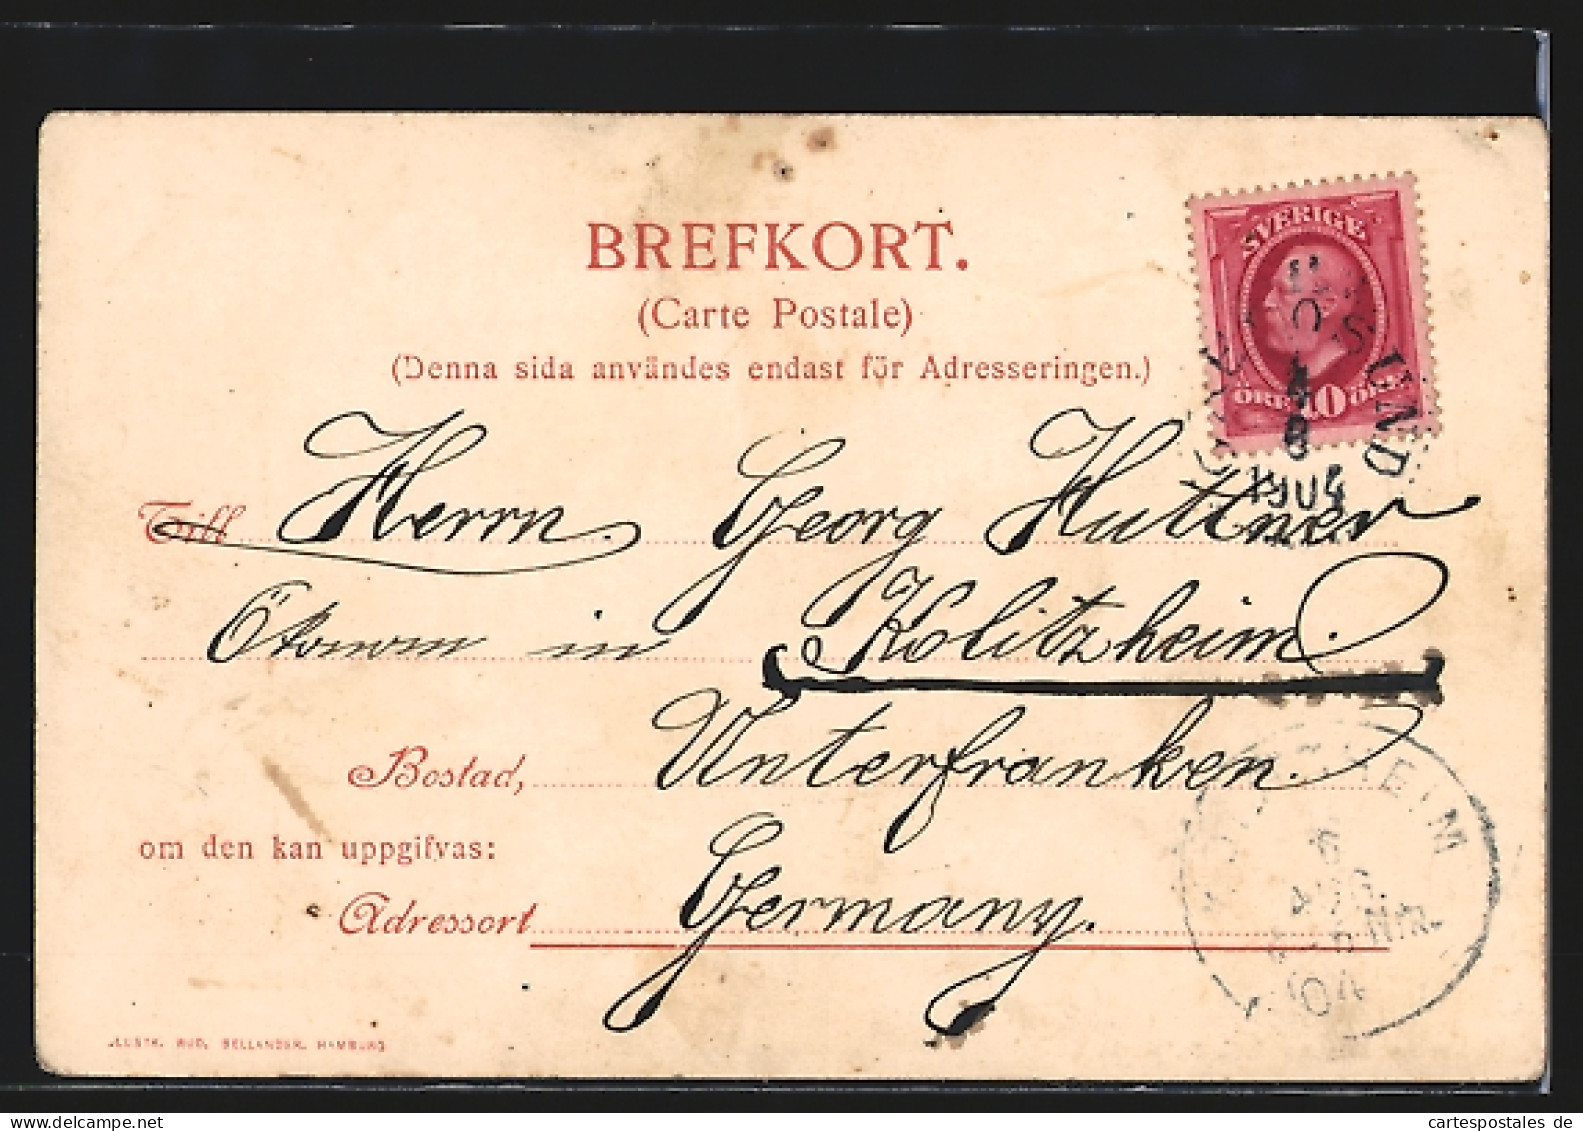 BREFKORT.
(Carte Postale)
(Denna sida användes endast för Adresseringen.)
SVERIGE
ÖRE 10 ÖRE
SUND
1904
Till Herrn Georg Huttner
Ökonom in Kolitzheim
Bostad, Unterfranken.
om den kan uppgifvas:
Adressort Germany.
HEIM
6
AUG.
04
RUD. BELLANDER. HAMBURG
cartespostales de